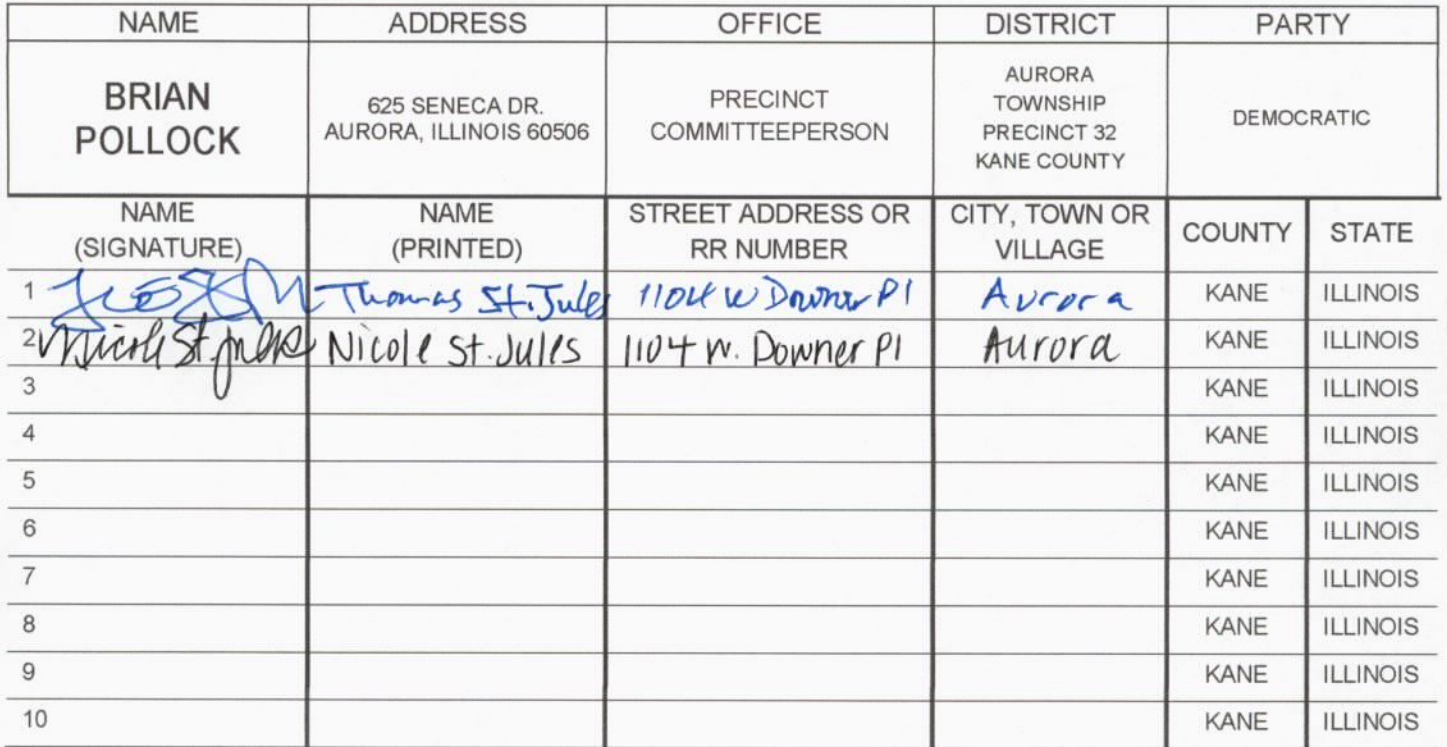 NAME ADDRESS OFFICE DISTRICT PARTY
BRIAN POLLOCK 625 SENECA DR. AURORA, ILLINOIS 60506 PRECINCT COMMITTEEPERSON AURORA TOWNSHIP PRECINCT 32 KANE COUNTY DEMOCRATIC
NAME (SIGNATURE) NAME (PRINTED) STREET ADDRESS OR RR NUMBER CITY, TOWN OR VILLAGE COUNTY STATE
1 Thomas St. Jules 1104 W Downer Pl Aurora KANE ILLINOIS
2 Nicole St. Jules Nicole St. Jules 1104 W. Downer Pl Aurora KANE ILLINOIS
3 KANE ILLINOIS
4 KANE ILLINOIS
5 KANE ILLINOIS
6 KANE ILLINOIS
7 KANE ILLINOIS
8 KANE ILLINOIS
9 KANE ILLINOIS
10 KANE ILLINOIS